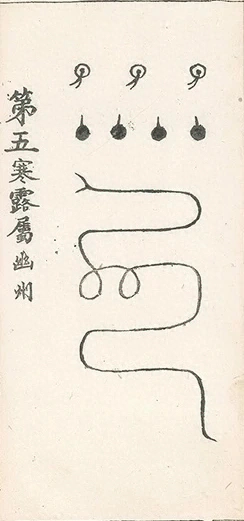 第五寒露屬幽州